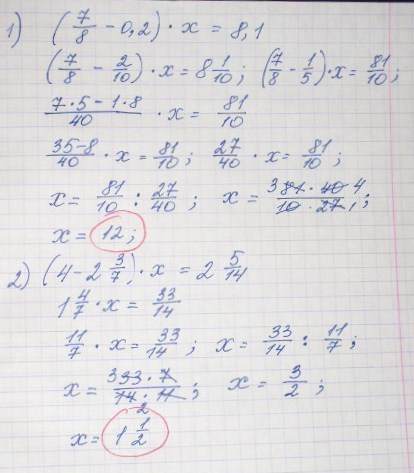 1) (7/8 - 0,2) · x = 8,1
(7/8 - 2/10) · x = 8 1/10; (7/8 - 1/5) · x = 81/10;
(7·5 - 1·8)/40 · x = 81/10
(35-8)/40 · x = 81/10; 27/40 · x = 81/10;
x = 81/10 : 27/40; x = 3 81 · 40 4/10 · 27 1;
x = 12;
2) (4 - 2 3/7) · x = 2 5/14
1 4/7 · x = 33/14
11/7 · x = 33/14; x = 33/14 : 11/7;
x = 3 33 · 7/14 · 11; x = 3/2;
2
x = 1 1/2